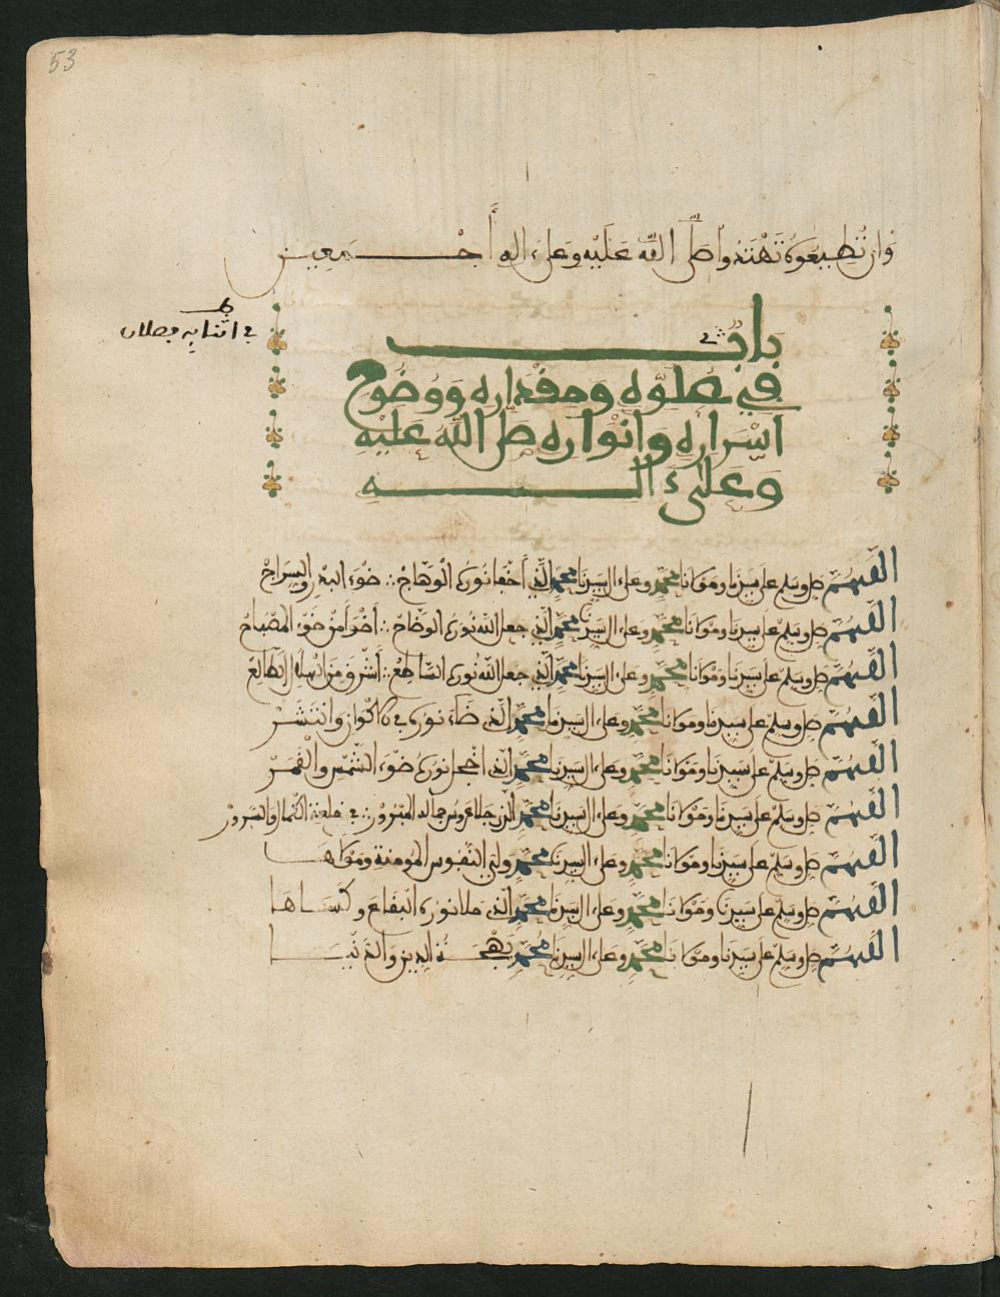 53
وَإِن تُطِيعُوهُ تَهْتَدُوا صَلَّى اللَّه عَلَيْهِ وَعَلَى ءَالِهِ أَجْمَعِين
بَابٌ
فِي عُلُوِّهِ وَمِقْدَارِهِ وَوُضُوحِ
أَسْرَارِهِ وَأَنْوَارِهِ صَلَّى اللَّهُ عَلَيْهِ
وَعَلَى ءَالِهِ
في اثنايه فصلان
اللَّهُمَّ صل وسلم على سيدنا ومولانا محمد وعلى ءال سيدنا محمد الذي أخفا نوره الوهاج ضوء البدر والسراج
اللَّهُمَّ صل وسلم على سيدنا ومولانا محمد وعلى ءال سيدنا محمد الذي جعل الله نوره الوضاح أضوأ من ضوء المصباح
اللَّهُمَّ صل وسلم على سيدنا ومولانا محمد وعلى ءال سيدنا محمد الذي جعل الله نوره الساطع أشرق من الهلال الطالع
اللَّهُمَّ صل وسلم على سيدنا ومولانا محمد وعلى ءال سيدنا محمد الذي ضاء نوره في الاكوان وانتشر
اللَّهُمَّ صل وسلم على سيدنا ومولانا محمد وعلى ءال سيدنا محمد الذي اخجل نوره ضوء الشمس والقمر
اللَّهُمَّ صل وسلم على سيدنا ومولانا محمد وعلى ءال سيدنا محمد الذي جلا عروس جماله المبرور في خلعة الكمال والسرور
اللَّهُمَّ صل وسلم على سيدنا ومولانا محمد وعلى ءال سيدنا محمد ولي النفوس المومنة ومولاها
اللَّهُمَّ صل وسلم على سيدنا ومولانا محمد وعلى ءال سيدنا محمد الذي ملا نوره البقاع وكساها
اللَّهُمَّ صل وسلم على سيدنا ومولانا محمد وعلى ءال سيدنا محمد بهجة الدين والدنيا